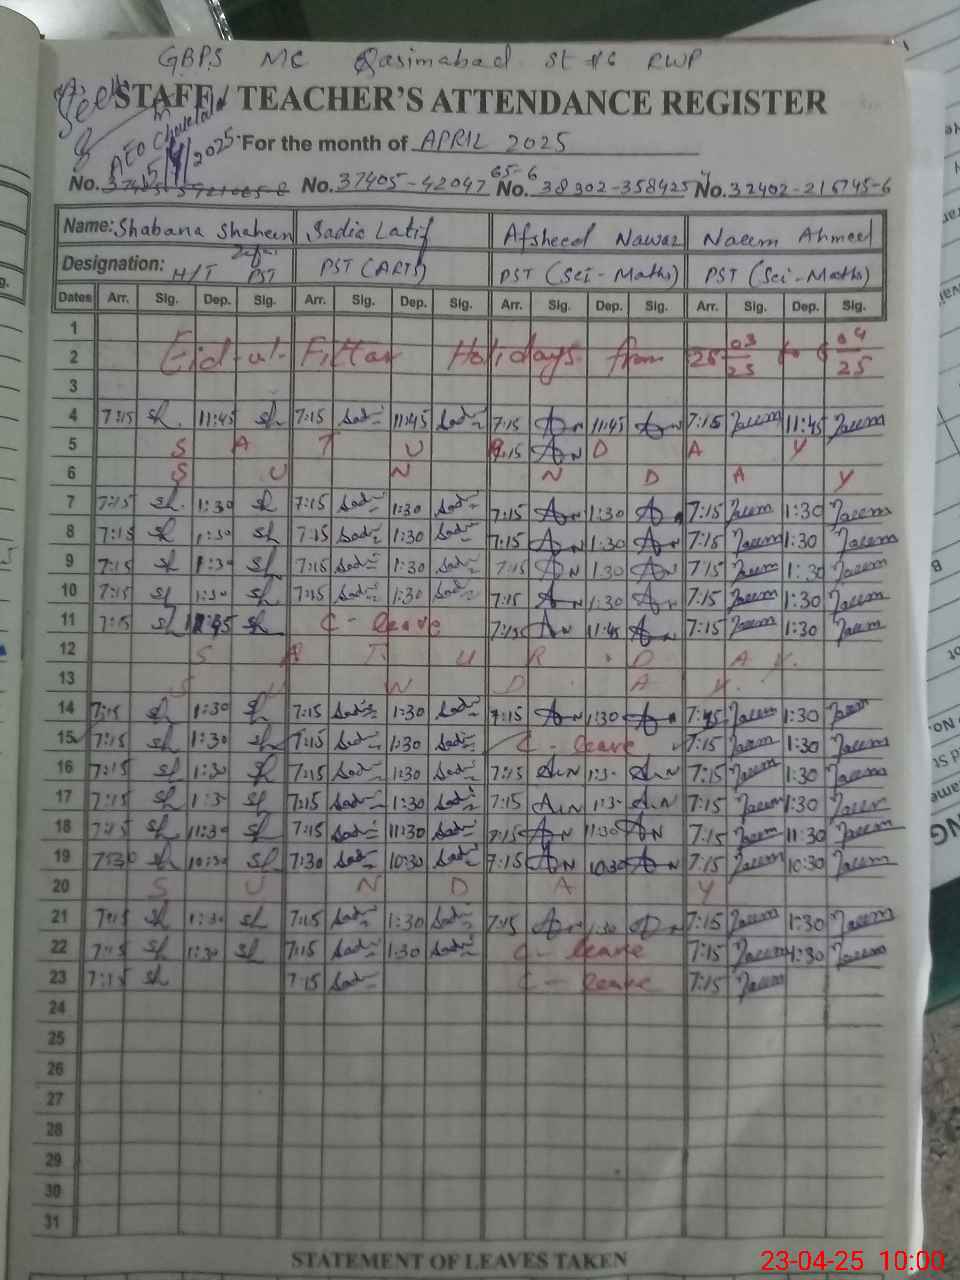 GBPS MC Qasimabad St #6 RWP
STAFF / TEACHER'S ATTENDANCE REGISTER
AEO
2025
For the month of APRIL 2025
No. No. 37405-42047 65-6 No. 38302-358425 No. 32402-216745-6
Name: Shabana Shaheen Sadia Latif Afsheed Nawaz Naeem Ahmed
Designation: H/T PST PST (ARTS) PST (Sci-Maths) PST (Sci-Maths)
Dates Arr. Sig. Dep. Sig. Arr. Sig. Dep. Sig. Arr. Sig. Dep. Sig. Arr. Sig. Dep. Sig.
1
2 Eid-ul-Fitter Holidays from 25 03 25 to 04 25
3
4 7:15 sh 11:45 sh 7:15 Sad 11:45 Sad 7:15 AN 11:45 AN 7:15 Naeem 11:45 Naeem
5 S A T U R D A Y
6 S U N D A Y
7 7:15 sh 1:30 sh 7:15 Sad 1:30 Sad 7:15 AN 1:30 AN 7:15 Naeem 1:30 Naeem
8 7:15 sh 1:30 sh 7:15 Sad 1:30 Sad 7:15 AN 1:30 AN 7:15 Naeem 1:30 Naeem
9 7:15 sh 1:30 sh 7:15 Sad 1:30 Sad 7:15 AN 1:30 AN 7:15 Naeem 1:30 Naeem
10 7:15 sh 1:30 sh 7:15 Sad 1:30 Sad 7:15 AN 1:30 AN 7:15 Naeem 1:30 Naeem
11 7:15 sh 11:45 sh C-leave 7:15 AN 11:45 AN 7:15 Naeem 1:30 Naeem
12 S A T U R D A Y
13 S U N D A Y
14 7:15 sh 1:30 sh 7:15 Sad 1:30 Sad 7:15 AN 1:30 AN 7:15 Naeem 1:30 Naeem
15 7:15 sh 1:30 sh 7:15 Sad 1:30 Sad C-leave 7:15 Naeem 1:30 Naeem
16 7:15 sh 1:30 sh 7:15 Sad 1:30 Sad 7:15 AN 1:3- AN 7:15 Naeem 1:30 Naeem
17 7:15 sh 1:3- sh 7:15 Sad 1:30 Sad 7:15 AN 1:3- AN 7:15 Naeem 1:30 Naeem
18 7:15 sh 11:30 sh 7:15 Sad 11:30 Sad 7:15 AN 11:30 AN 7:15 Naeem 11:30 Naeem
19 7:30 sh 10:30 sh 7:30 Sad 10:30 Sad 7:15 AN 10:30 AN 7:15 Naeem 10:30 Naeem
20 S U N D A Y
21 7:15 sh 1:30 sh 7:15 Sad 1:30 Sad 7:15 AN 1:30 AN 7:15 Naeem 1:30 Naeem
22 7:15 sh 1:30 sh 7:15 Sad 1:30 Sad C-leave 7:15 Naeem 1:30 Naeem
23 7:15 sh 7:15 Sad C-leave 7:15 Naeem
24
25
26
27
28
29
30
31
STATEMENT OF LEAVES TAKEN
23-04-25 10:00